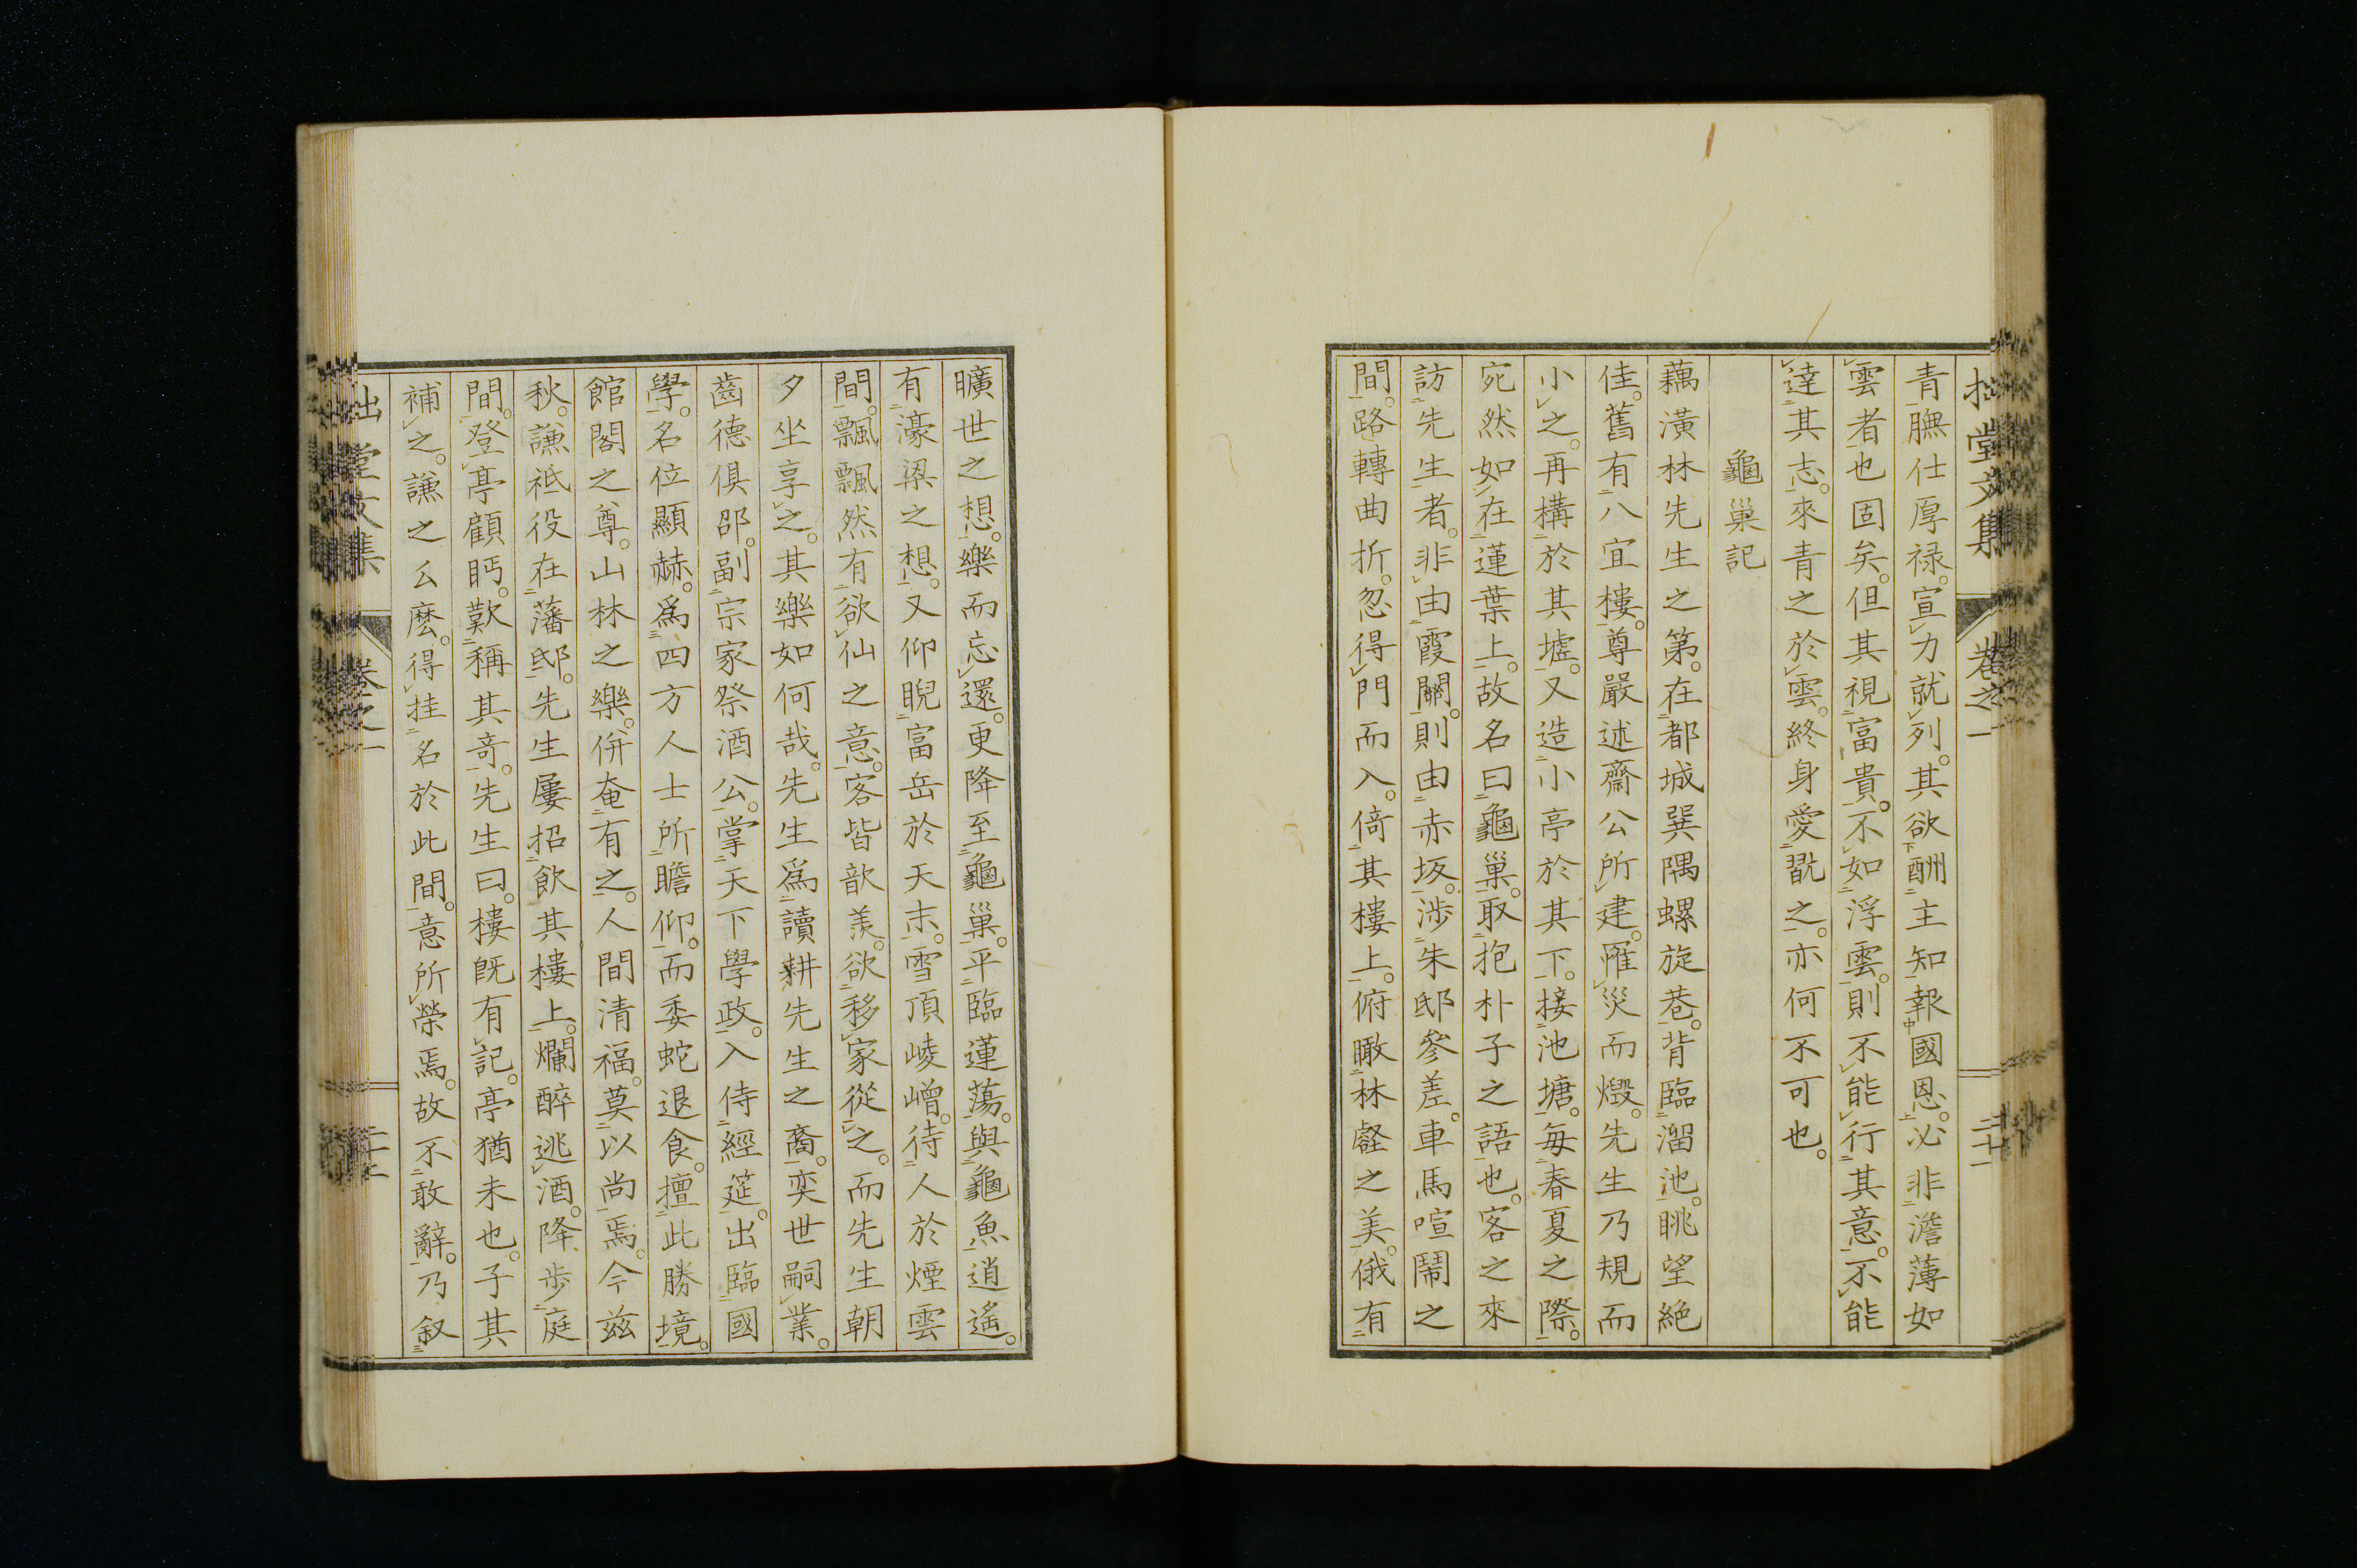 拙堂文集 卷之一 二十一
青臕仕厚禄。宣力就列。其欲酬主知報國恩。必非澹薄如
雲者也固矣。但其視富貴。不如浮雲。則不能行其意。不能
達其志。來青之於雲。終身愛翫之。亦何不可也。
龜巢記
藕潢林先生之第。在都城巽隅螺旋巷。背臨溜池。眺望絶
佳。舊有八宜樓。尊嚴述齋公所建。罹災而燬。先生乃規而
小之。再構於其墟。又造小亭於其下。接池塘。每春夏之際。
宛然如在蓮葉上。故名曰龜巢。取抱朴子之語也。客之來
訪先生者。非由霞關。則由赤坂。涉朱邸參差。車馬喧鬧之
間。路轉曲折。忽得門而入。倚其樓上。俯瞰林壑之美。俄有
曠世之想。樂而忘還。更降至龜巢。平臨蓮蕩。與龜魚逍遙。
有濠梁之想。又仰睨富岳於天末。雪頂崚嶒。待人於煙雲
間。飄飄然有欲仙之意。客皆歆羨。欲移家從之。而先生朝
夕坐享之。其樂如何哉。先生爲讀耕先生之裔。奕世嗣業。
齒德俱邵。副宗家祭酒公。掌天下學政。入侍經筵。出臨國
學。名位顯赫。爲四方人士所瞻仰。而委蛇退食。擅此勝境。
館閣之尊。山林之樂。併奄有之。人間清福。莫以尚焉。今茲
秋。謙祗役在藩邸。先生屢招飲其樓上。爛醉逃酒。降步庭
間。登亭顧眄。歎稱其奇。先生曰。樓既有記。亭猶未也。子其
補之。謙之么麼。得挂名於此間。意所榮焉。故不敢辭。乃叙
拙堂文集 卷之一